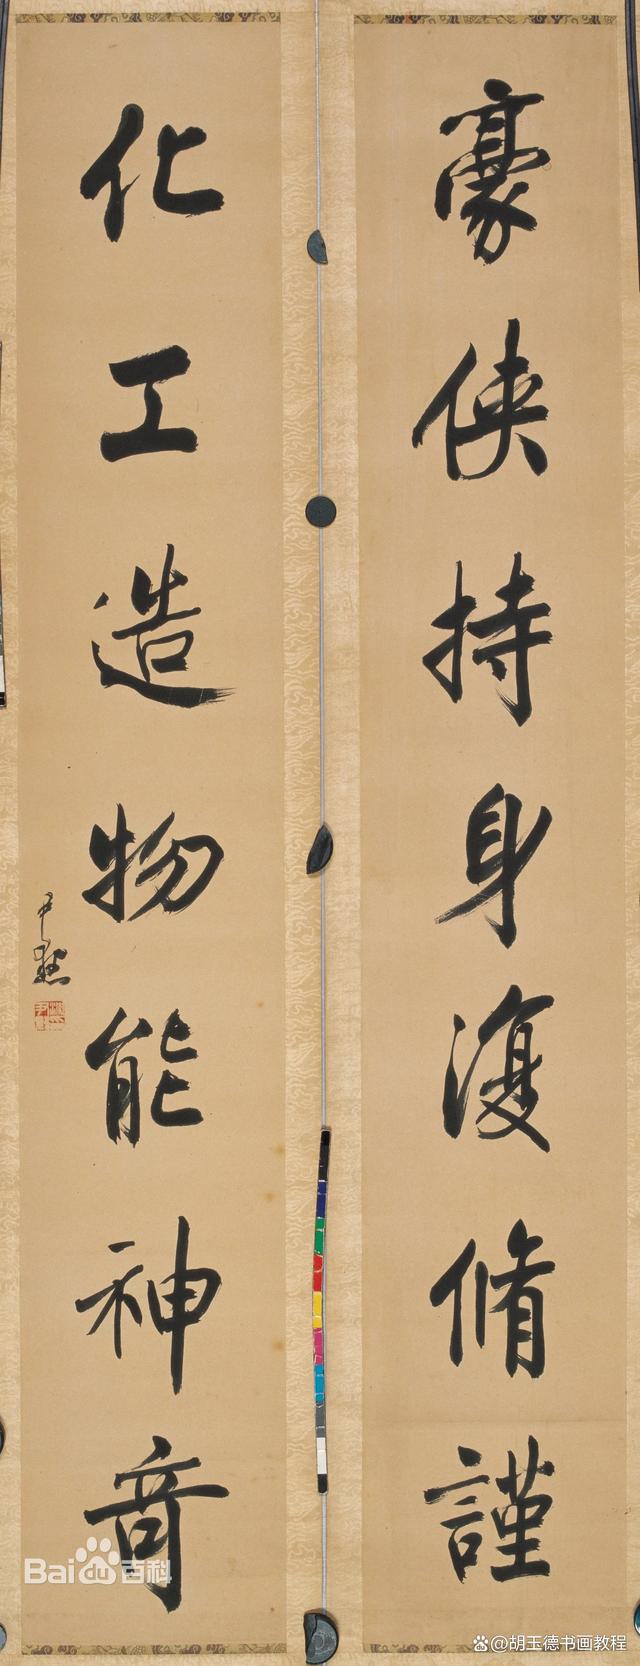 豪侠持身復脩謹
化工造物能神竒
尹默
Bai百科
@胡玉德书画教程